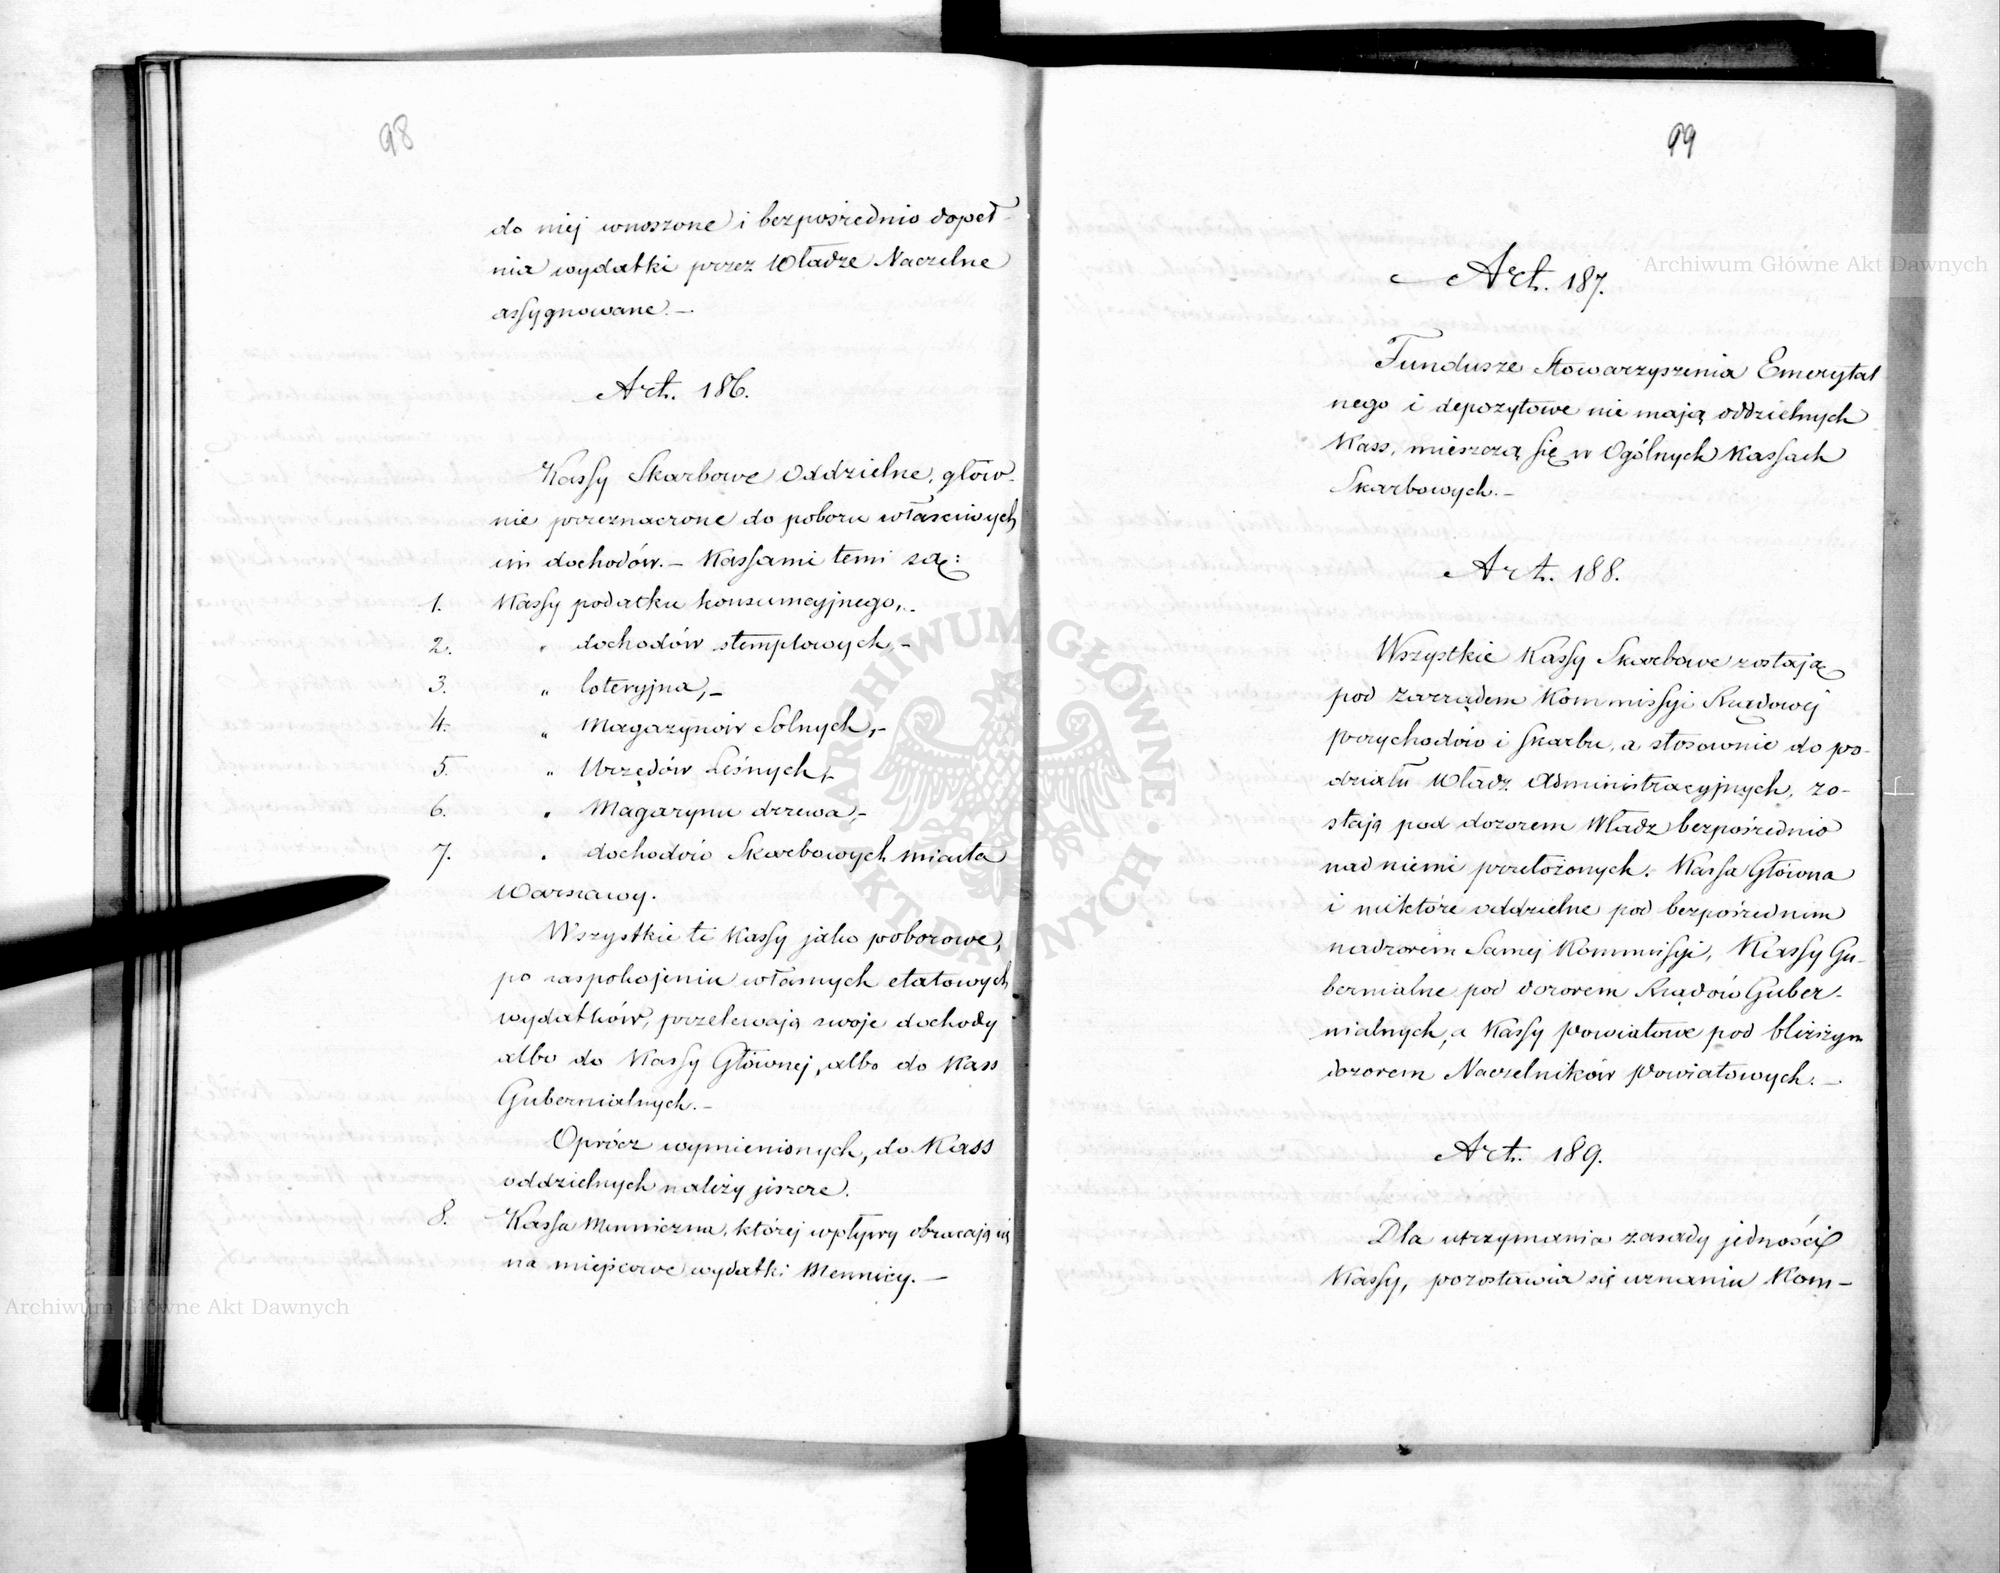 98
do niej wnoszone i bezpośrednio dopeł-
nia wydatki przez Władze Naczelne
assygnowane. —
Art. 186.
Kassy Skarbowe Oddzielne, głów-
nie przeznaczone do poboru właściwych
im dochodów. — Kassami temi są:
1. Kassy podatku konsumcyjnego, -
2. " dochodów stemplowych, -
3. " loteryjna, -
4. " Magazynów Solnych, -
5. " Urzędów Leśnych, -
6. " Magazynu drzewa, -
7. " dochodów Skarbowych miasta
Warszawy.
Wszystkie te Kassy jako poborowe,
po zaspokojeniu własnych etatowych
wydatków, przelewają swoje dochody
albo do Kassy Głównej, albo do Kass
Gubernialnych. -
Oprócz wymienionych, do Kass
oddzielnych należy jeszcze.
8. Kassa Menniczna, której wpływy obracają się
na miejscowe wydatki Mennicy. —
99
Art. 187.
Fundusze Stowarzyszenia Emerytal
nego i depozytowe nie mają oddzielnych
Kass, mieszczą się w Ogólnych Kassach
Skarbowych. -
Art. 188.
Wszystkie Kassy Skarbowe zostają
pod zarządem Kommissyi Rządowej
przychodów i Skarbu, a stosownie do po-
działu Władz Administracyjnych, zo-
stają pod dozorem Władz bezpośrednio
nad niemi przełożonych. Kassa Główna
i niektóre oddzielne pod bezpośrednim
nadzorem Samej Kommissyi, Kassy Gu-
bernialne pod dozorem Rządów Guber-
nialnych, a Kassy Powiatowe pod bliższym
dozorem Naczelników Powiatowych. —
Art. 189.
Dla utrzymania zasady jedności
Kassy, pozostawia się uznaniu Kom-
Archiwum Główne Akt Dawnych
Archiwum Główne Akt Dawnych
ARCHIWUM GŁÓWNE
AKT DAWNYCH